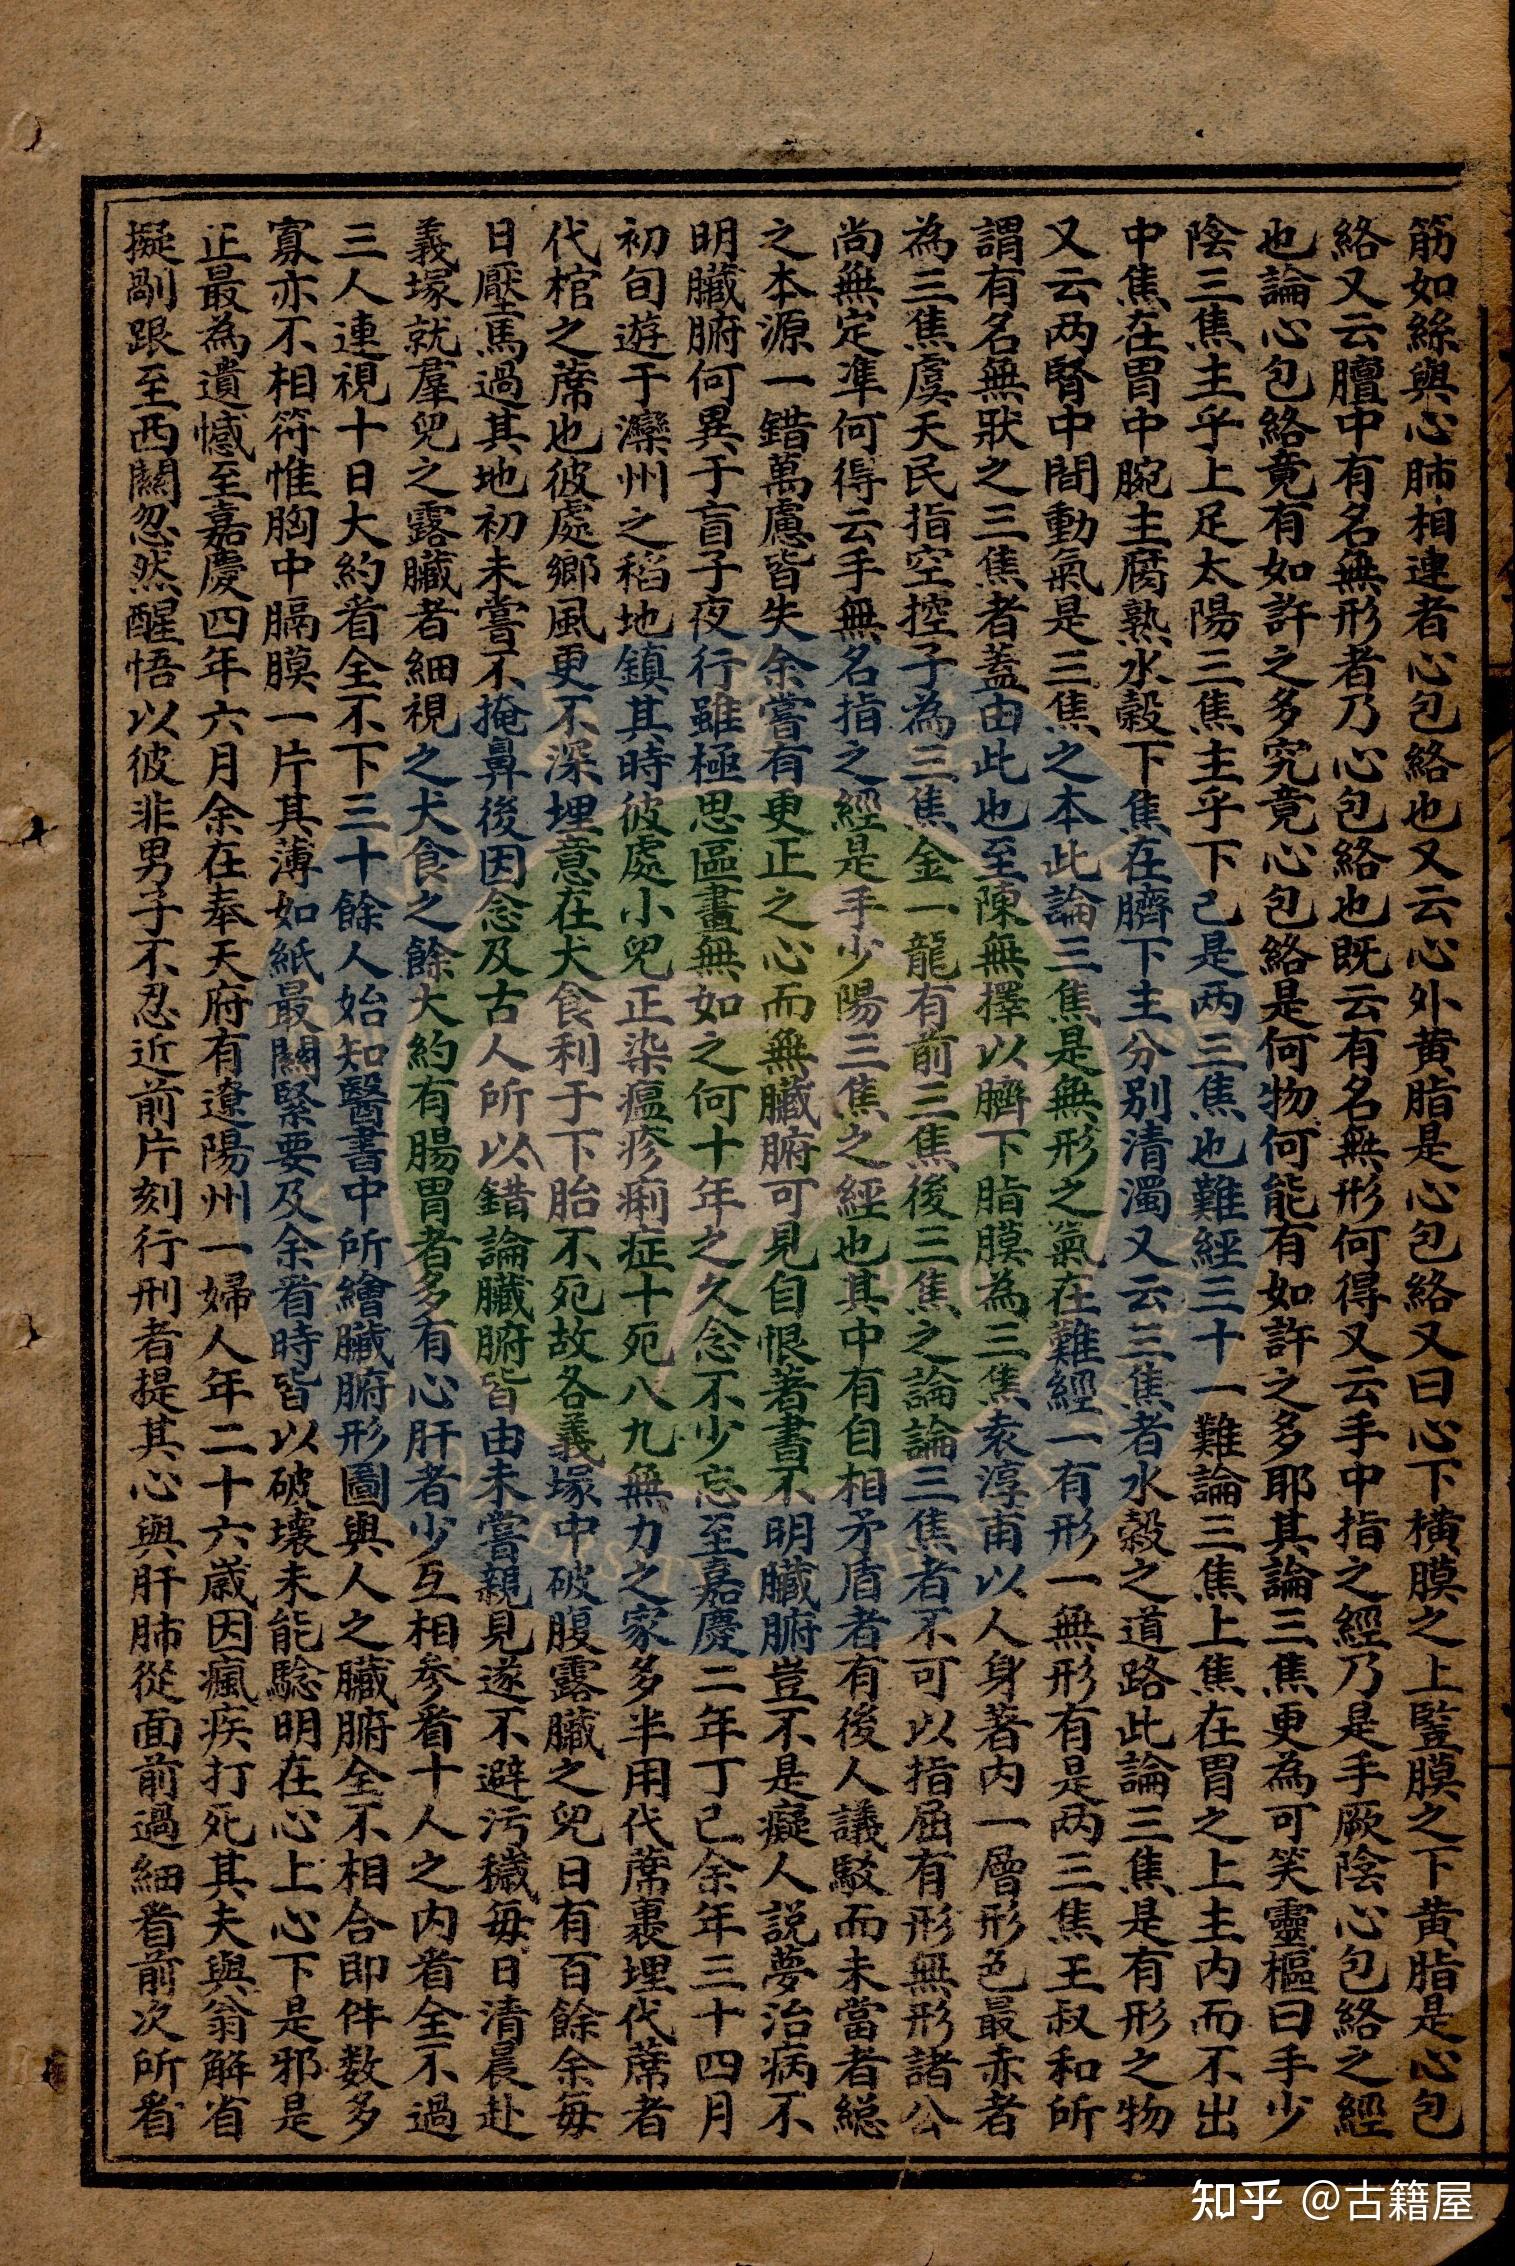 筋如絲與心肺相連者心包絡也又云心外黄脂是心包絡又曰心下橫膜之上豎膜之下黄脂是心包
絡又云膻中有名無形者乃心包絡也既云有名無形何得又云手中指之經乃是手厥陰心包絡之經
也論心包絡竟有如許之多究竟心包絡是何物何能有如許之多耶其論三焦更為可笑靈樞曰手少
陰三焦主乎上足太陽三焦主乎下已是两三焦也難經三十一難論三焦上焦在胃之上主内而不出
中焦在胃中腕主腐熟水穀下焦在臍下主分别清濁又云三焦者水穀之道路此論三焦是有形之物
又云两腎中間動氣是三焦之本此論三焦是無形之氣在難經一有形一無形有是两三焦王叔和所
謂有名無狀之三焦者蓋由此也至陳無擇以臍下脂膜為三焦袁淳甫以人身著内一層形色最赤者
為三焦虞天民指空控子為三焦金一龍有前三焦後三焦之論論三焦者不可以指屈有形無形諸公
尚無定準何得云手無名指之經是手少陽三焦之經也其中有自相矛盾者有後人議駁而未當者總
之本源一錯萬慮皆失余嘗有更正之心而無臟腑可見自恨著書不明臟腑豈不是癡人説夢治病不
明臟腑何異于盲子夜行雖極思區畫無如之何十年之久念不少忘至嘉慶二年丁已余年三十四月
初旬遊于灤州之稻地鎮其時彼處小兒正染瘟疹痢症十死八九無力之家多半用代蓆裹埋代蓆者
代棺之蓆也彼處鄉風更不深埋意在犬食利于下胎不死故各義塚中破腹露臟之兒日有百餘余每
日壓馬過其地初未嘗不掩鼻後因念及古人所以錯論臟腑皆由未嘗親見遂不避污穢每日清晨赴
義塚就羣兒之露臟者細視之犬食之餘大約有腸胃者多有心肝者少互相參看十人之内看全不過
三人連視十日大約看全不下三十餘人始知醫書中所繪臟腑形圖與人之臟腑全不相合即件数多
寡亦不相符惟胸中膈膜一片其薄如紙最關緊要及余看時皆以破壞未能驗明在心上心下是邪是
正最為遺憾至嘉慶四年六月余在奉天府有遼陽州一婦人年二十六歲因瘋疾打死其夫與翁解省
擬剮跟至西關忽然醒悟以彼非男子不忍近前片刻行刑者提其心與肝肺從面前過細看前次所看
知乎 @古籍屋